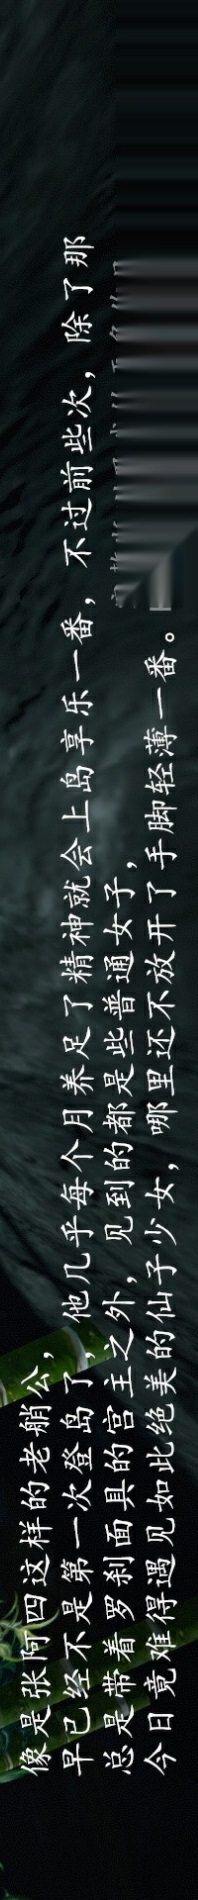 像是张阿四这样的老艄公，
早已经不是第一次登岛了，他几乎每个月养足了精神就会上岛享乐一番，不过前些次，除了那
总是带着罗刹面具的宫主之外，见到的都是些普通女子，
今日竟难得遇见如此绝美的仙子少女，哪里还不放开了手脚轻薄一番。